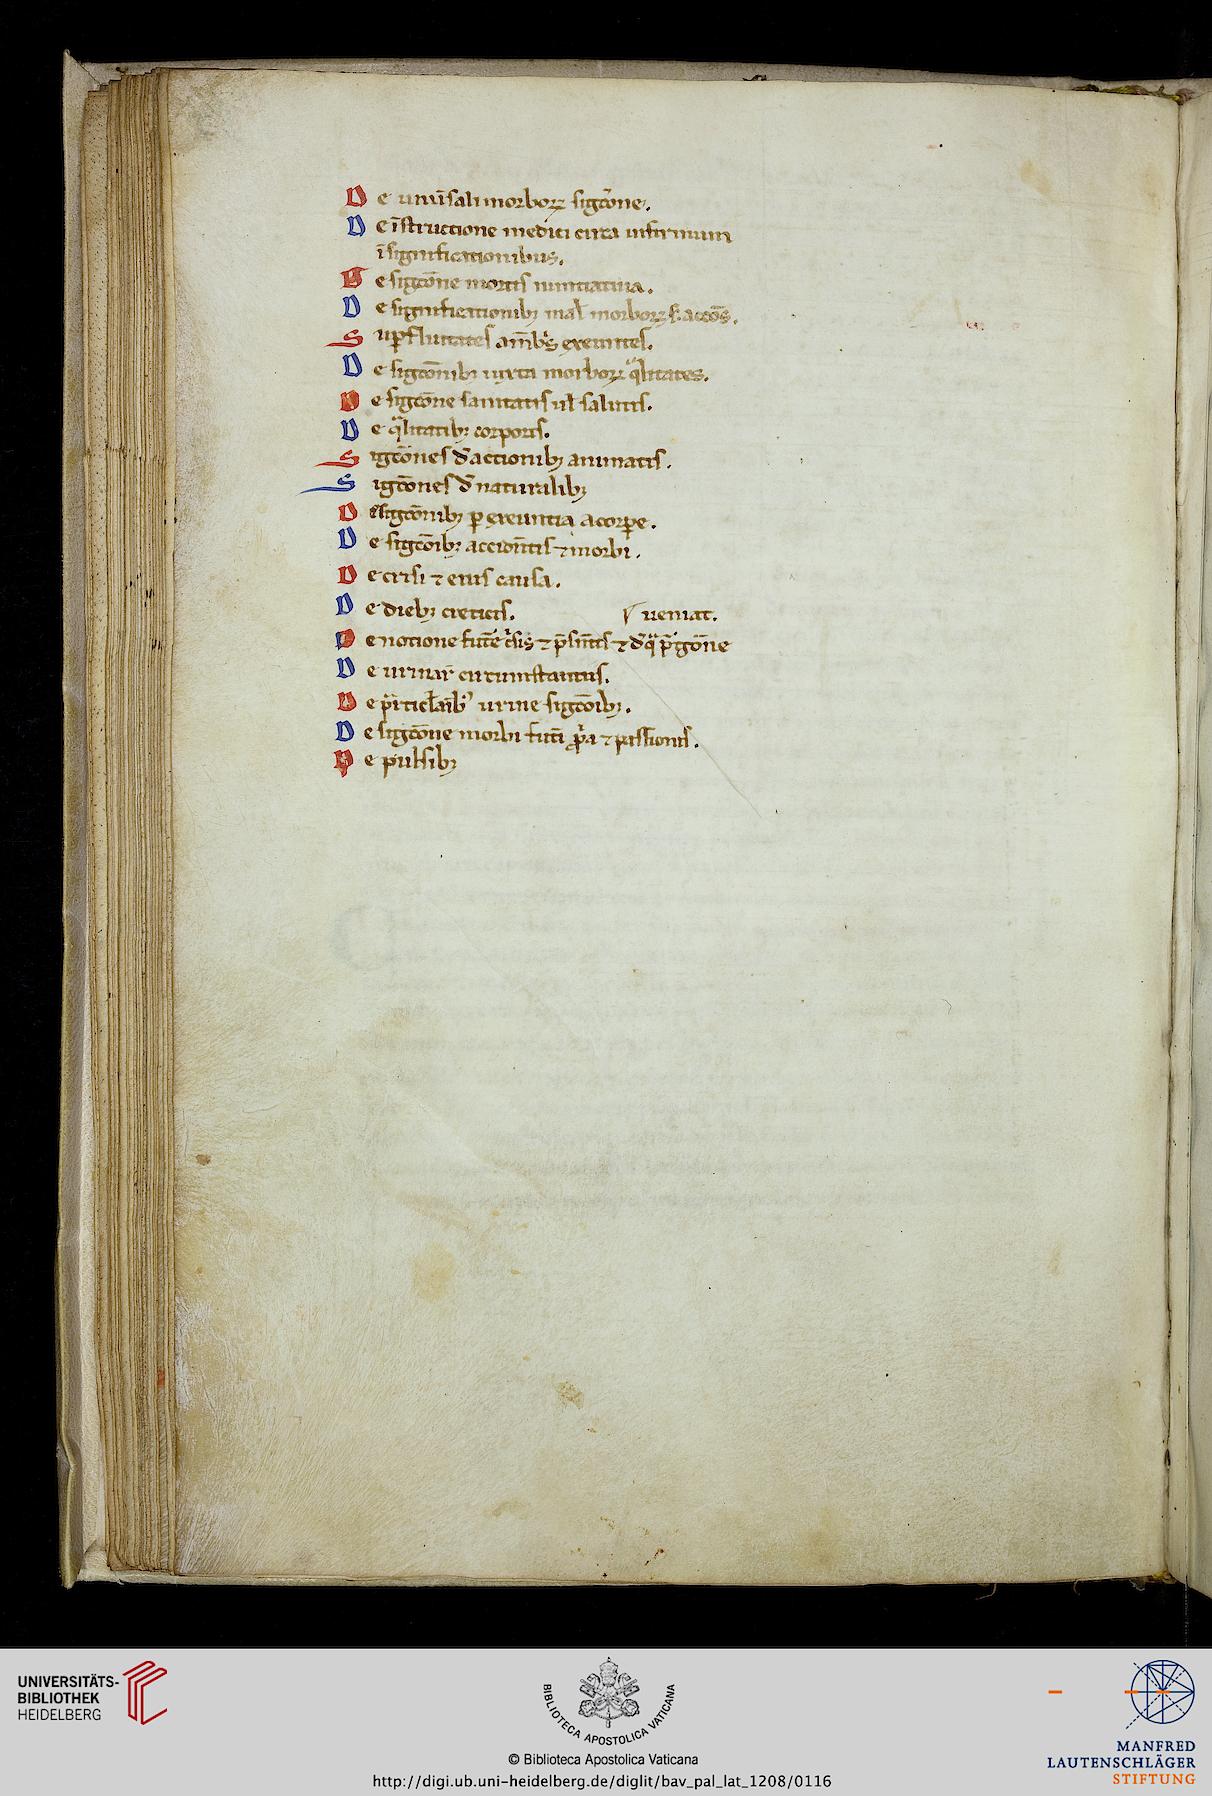 De uniu̅sali morborꝝ sigt̅one.
De i̅structione medici circa infirmum
i̅ significationibus.
De sigt̅one mortis nuntiatiua.
De significationibꝫ mal̅ morborꝝ
Suꝑfluitates exeuntes.
De sigt̅onibꝫ iuxta morborꝝ qͣlitates.
De sigt̅one sanitatis ul̅ salutis.
De qͣlitatibꝫ corporis.
Sigt̅ones d̅ actionibꝫ animatis.
Sigt̅ones d̅ naturalibꝫ
De sigt̅onibꝫ ꝑ exeuntia a corpe.
De sigt̅oibꝫ accide̅tis ⁊ morbi.
De crisi ⁊ eius causa.
De diebꝫ creticis. ueniat.
De notione fut̅e c̍sis ⁊ p̅sentis ⁊
De urinar̅ circumstantiis.
De urine sigt̅oibꝫ.
De sigt̅one morbi fut̅i ⁊ passionis.
De pulsibꝫ
UNIVERSITÄTS-
BIBLIOTHEK
HEIDELBERG
BIBLIOTECA APOSTOLICA VATICANA
© Biblioteca Apostolica Vaticana
http://digi.ub.uni-heidelberg.de/diglit/bav_pal_lat_1208/0116
MANFRED
LAUTENSCHLÄGER
STIFTUNG